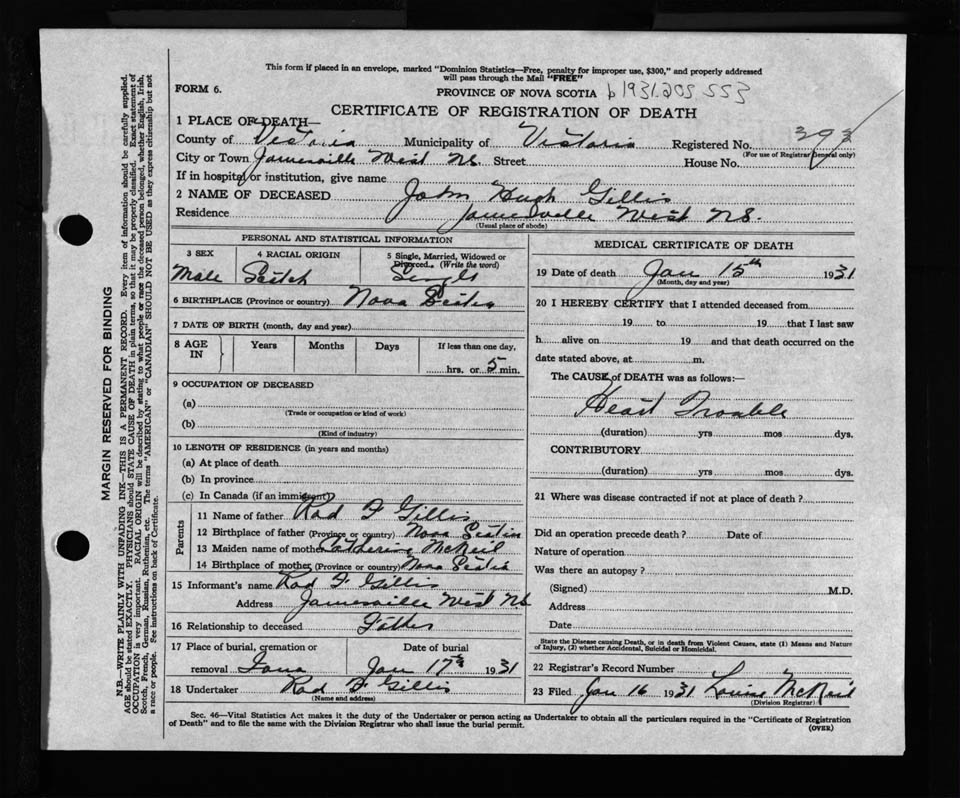 This form if placed in an envelope, marked "Dominion Statistics—Free, penalty for improper use, $300," and properly addressed
will pass through the Mail "FREE"
FORM 6.
PROVINCE OF NOVA SCOTIA b 1931.205 553
CERTIFICATE OF REGISTRATION OF DEATH
1 PLACE OF DEATH—
County of Victoria Municipality of Victoria Registered No.
(For use of Registrar General only)
City or Town Jamesville West N.S. Street House No.
If in hospital or institution, give name
2 NAME OF DECEASED John Hugh Gillis
Residence Jamesville West N.S.
(Usual place of abode)
PERSONAL AND STATISTICAL INFORMATION
3 SEX 4 RACIAL ORIGIN 5 Single, Married, Widowed or Divorced. (Write the word)
Male Scotch Single
6 BIRTHPLACE (Province or country) Nova Scotia
7 DATE OF BIRTH (month, day and year)
8 AGE IN Years Months Days If less than one day,
hrs. or 5 min.
9 OCCUPATION OF DECEASED
(a)
(Trade or occupation or kind of work)
(b)
(Kind of industry)
10 LENGTH OF RESIDENCE (in years and months)
(a) At place of death
(b) In province
(c) In Canada (if an immigrant)
Parents
11 Name of father Rod F Gillis
12 Birthplace of father (Province or country) Nova Scotia
13 Maiden name of mother Catherine McNeil
14 Birthplace of mother (Province or country) Nova Scotia
15 Informant's name Rod F. Gillis
Address Jamesville West N.S.
16 Relationship to deceased Father
17 Place of burial, cremation or Date of burial
removal Iona Jan 17th 1931
18 Undertaker Rod F Gillis
(Name and address)
MEDICAL CERTIFICATE OF DEATH
19 Date of death Jan 15th 1931
(Month, day and year)
20 I HEREBY CERTIFY that I attended deceased from
19 to 19 that I last saw
h alive on 19 and that death occurred on the
date stated above, at m.
The CAUSE of DEATH was as follows:—
Heart Trouble
(duration) yrs mos dys.
CONTRIBUTORY
(duration) yrs mos dys.
21 Where was disease contracted if not at place of death?
Did an operation precede death? Date of
Nature of operation
Was there an autopsy?
(Signed) M.D.
Address
Date
State the Disease causing Death, or in death from Violent Causes, state (1) Means and Nature
of Injury, (2) whether Accidental, Suicidal or Homicidal.
22 Registrar's Record Number
23 Filed Jan 16 1931 Louise McNeil
(Division Registrar)
Sec. 46—Vital Statistics Act makes it the duty of the Undertaker or person acting as Undertaker to obtain all the particulars required in the "Certificate of Registration
of Death" and to file the same with the Division Registrar who shall issue the burial permit.
(OVER)
MARGIN RESERVED FOR BINDING
N.B.—WRITE PLAINLY WITH UNFADING INK—THIS IS A PERMANENT RECORD. Every item of information should be carefully supplied.
AGE should be stated EXACTLY. PHYSICIANS should STATE CAUSE OF DEATH in plain terms, so that it may be properly classified. Exact statement of
OCCUPATION is very important. RACIAL ORIGIN will be described by stating to what people or race the deceased person belonged, whether English, Irish,
Scotch, French, German, Russian, Ruthenian, etc. The terms "AMERICAN" or "CANADIAN" SHOULD NOT BE USED as they express citizenship but not
a race or people. See instructions on back of Certificate.